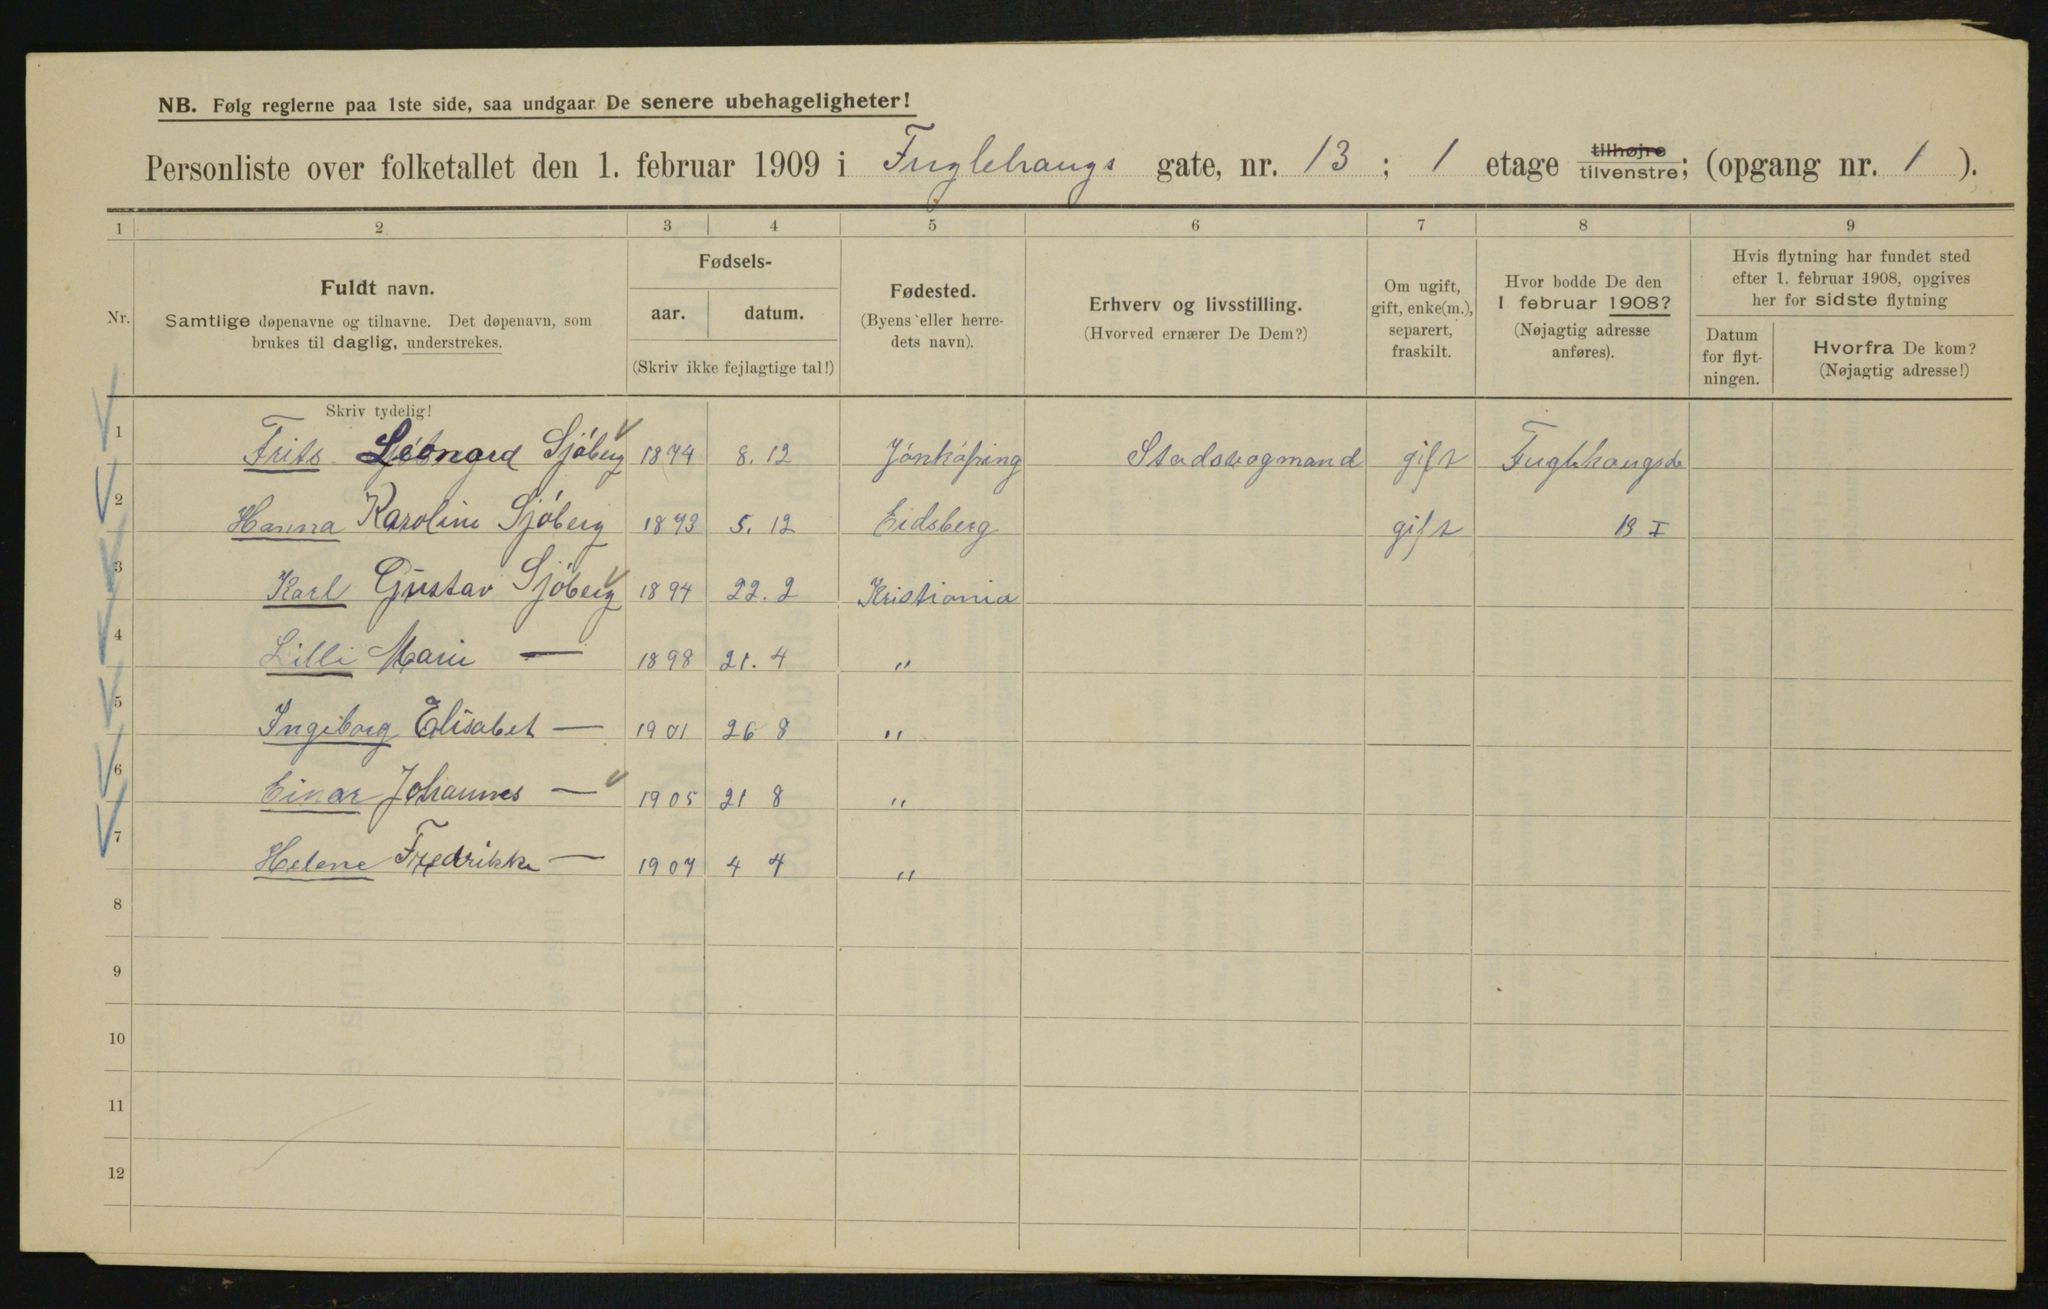 NB. Følg reglerne paa 1ste side, saa undgaar De senere ubehageligheter!
Personliste over folketallet den 1. februar 1909 i Fuglehaugs gate, nr. 13 ; 1 etage tilhøjre tilvenstre; (opgang nr. 1 ).
1 2 3 4 5 6 7 8 9
Nr.
Fuldt navn.
Samtlige døpenavne og tilnavne. Det døpenavn, som
brukes til daglig, understrekes.
Fødsels-
aar. datum.
(Skriv ikke fejlagtige tal!)
Fødested.
(Byens eller herre-
dets navn).
Erhverv og livsstilling.
(Hvorved ernærer De Dem?)
Om ugift,
gift, enke(m.),
separert,
fraskilt.
Hvor bodde De den
1 februar 1908?
(Nøjagtig adresse
anføres).
Hvis flytning har fundet sted
efter 1. februar 1908, opgives
her for sidste flytning
Datum
for flyt-
ningen.
Hvorfra De kom?
(Nøjagtig adresse!)
Skriv tydelig!
1 Frits Leonard Sjöberg 1874 8. 12 Jönköping Stadsvogmand gift Fuglehaugsda
2 Hanna Karoline Sjöberg 1873 5. 12 Eidsberg gift 13 I
3 Karl Gustav Sjöberg 1894 22. 2 Kristiania
4 Lilli Marie — 1898 21. 4 "
5 Ingeborg Elisabet — 1901 26 8 "
6 Einar Johannes — 1905 21 8 "
7 Helene Fredrikke — 1907 4 4 "
8
9
10
11
12